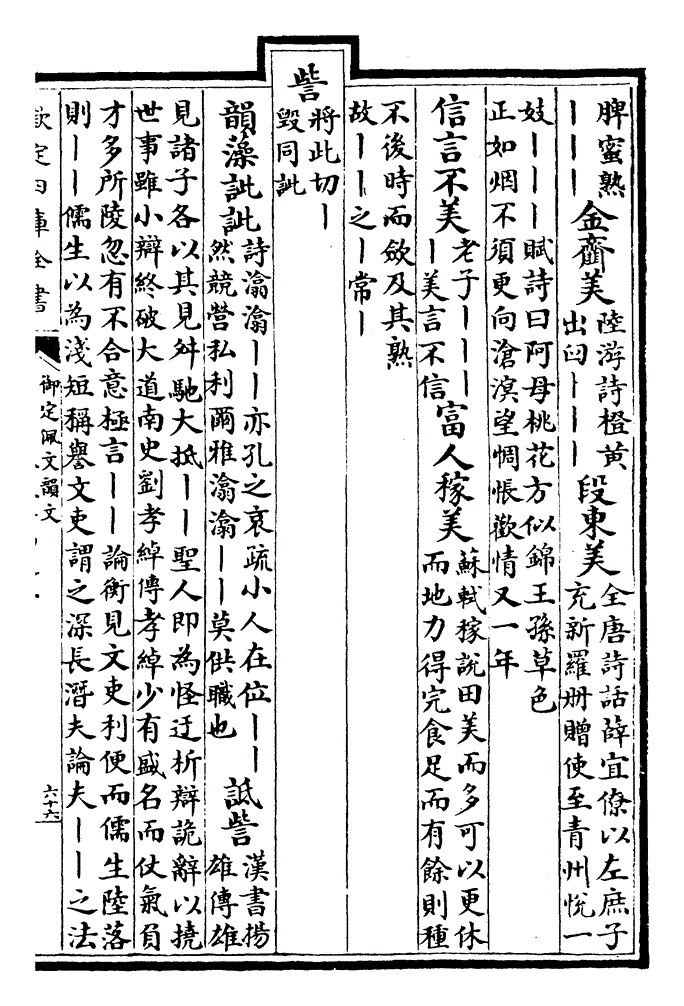 脾蜜熟
｜｜｜
金虀美
陸游詩橙黄
出臼｜｜｜
段東美
全唐詩話薛宜僚以左庶子
充新羅冊贈使至青州悅一
妓｜｜｜賦詩曰阿母桃花方似錦王孫草色
正如烟不須更向滄溟望惆悵歡情又一年
信言不美
老子｜｜｜
｜美言不信
富人稼美
蘇軾稼說田美而多可以更休
而地力得完食足而有餘則種
不後時而斂及其熟
故｜｜之｜常｜
訾
將此切｜
毀同訿
韻藻訿訿
詩潝潝｜｜亦孔之哀疏小人在位｜｜
然競營私利爾雅潝潝｜｜莫供職也
詆訾
漢書揚
雄傳雄
見諸子各以其見舛馳大抵｜｜聖人即為怪迂析辯詭辭以撓
世事雖小辯終破大道南史劉孝綽傳孝綽少有盛名而仗氣負
才多所陵忽有不合意極言｜｜論衡見文吏利便而儒生陸落
則｜｜儒生以為淺短稱譽文吏謂之深長潛夫論夫｜｜之法
欽定四庫全書
御定佩文韻
六十六